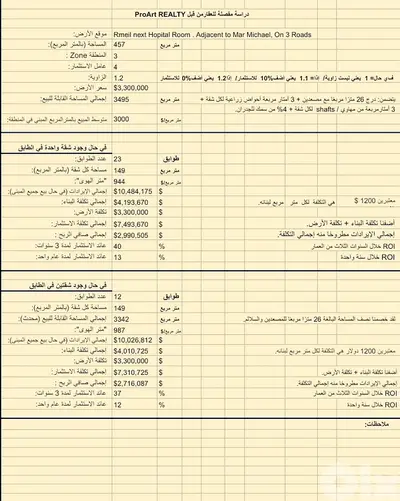 دراسة مفصلة للعقار من قبل ProArt REALTY
موقع الأرض: Rmeil next Hopital Room . Adjacent to Mar Michael, On 3 Roads
المساحة (بالمتر المربع): 457 متر مربع
المنطقة Zone : 3
عامل الاستثمار: 4
الزاوية: 1.2
سعر الأرض: $3,300,000
إجمالي المساحة القابلة للبيع: 3495 متر مربع
متوسط المبيع بالمتر المربع المبني في المنطقة: 3000 متر مربع/$
يتضمن: درج 26 مترًا مربعًا مع مصعدين + 3 أمتار مربعة أحواض زراعية لكل شقة +
3 أمتار مربعة من مهاوي / shafts لكل شقة + 4% من سمك للجدران.
في حال وجود شقة واحدة في الطابق
عدد الطوابق: 23 طوابق
مساحة كل شقة (بالمتر المربع): 149 متر مربع
"متر الهوى": 944 متر مربع/$
إجمالي الإيرادات (في حال بيع جميع المبنى): $10,484,175 $
إجمالي تكلفة البناء: $4,193,670 $ معتبرين 1200 $ هي التكلفة لكل متر مربع لبنائه.
تكلفة الأرض: $3,300,000 $
إجمالي تكلفة الاستثمار: $7,493,670 $ أضفنا تكلفة البناء + تكلفة الأرض.
إجمالي صافي الربح : $2,990,505 $ إجمالي الإيرادات مطروحًا منه إجمالي التكلفة.
عائد الاستثمار لمدة 3 سنوات: 40 % ROI خلال السنوات الثلاث من العمار
عائد الاستثمار لمدة عام واحد: 13 % ROI خلال سنة واحدة
في حال وجود شقتين في الطابق
عدد الطوابق: 12 طوابق
مساحة كل شقة (بالمتر المربع): 149 متر مربع
إجمالي المساحة القابلة للبيع (محدث): 3342 متر مربع لقد خصمنا نصف المساحة البالغة 26 مترًا مربعًا للمصعدين والسلالم.
"متر الهوى": 987 متر مربع/$
إجمالي الإيرادات (في حال بيع جميع المبنى): $10,026,812 $
إجمالي تكلفة البناء: $4,010,725 $ معتبرين 1200 دولار هي التكلفة لكل متر مربع لبنائه.
تكلفة الأرض: $3,300,000 $
إجمالي تكلفة الاستثمار: $7,310,725 $ أضفنا تكلفة البناء + تكلفة الأرض.
إجمالي صافي الربح : $2,716,087 $ إجمالي الإيرادات مطروحًا منه إجمالي التكلفة.
عائد الاستثمار لمدة 3 سنوات: 37 % ROI خلال السنوات الثلاث من العمار
عائد الاستثمار لمدة عام واحد: 12 % ROI خلال سنة واحدة
ملاحظات: